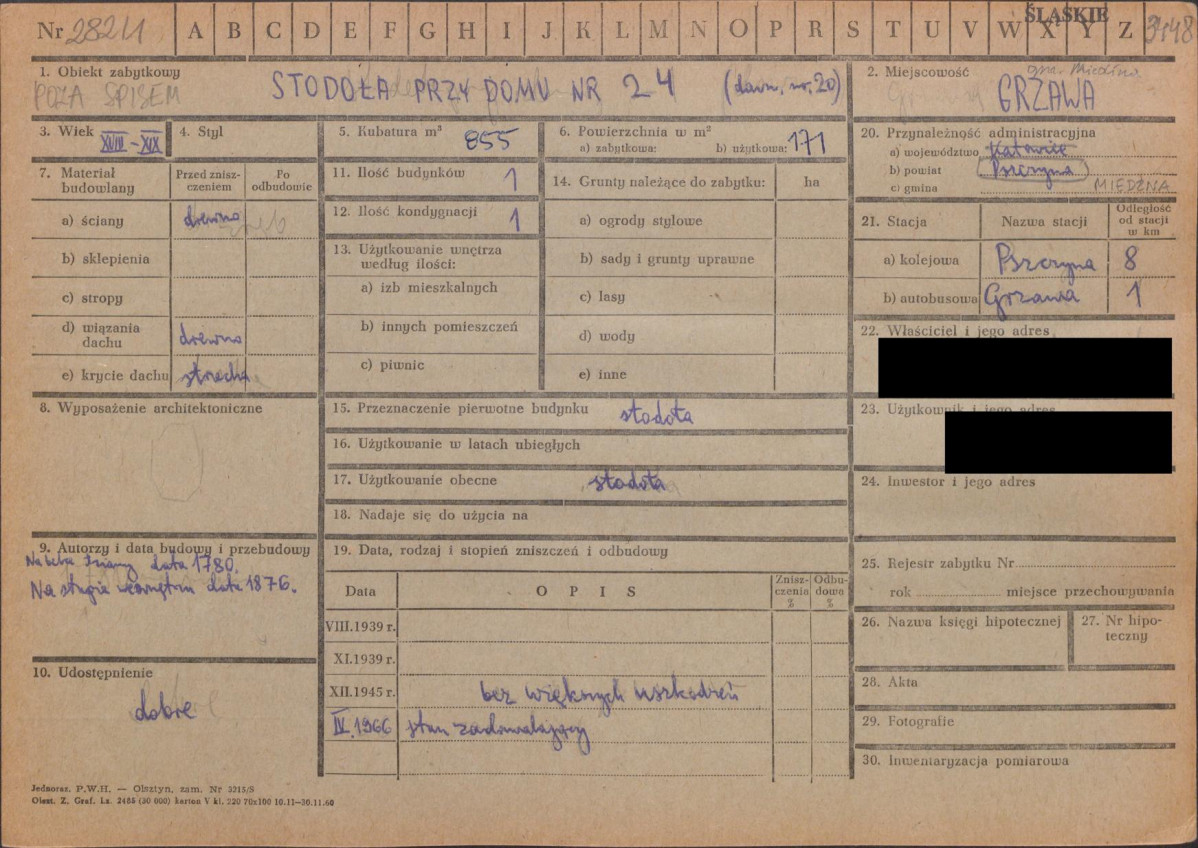 ŚLĄSKIE
Nr 2824 A B C D E F G H I J K L M N O P R S T U V W X Y Z 3448
1. Obiekt zabytkowy
POZA SPISEM
STODOŁA PRZY DOMU NR 24 (dawn. nr. 20)
2. Miejscowość
gm. Miedźna
GRZAWA
3. Wiek XVIII - XIX
4. Styl
5. Kubatura m³ 855
6. Powierzchnia w m²
a) zabytkowa: b) użytkowa: 171
7. Materiał budowlany
Przed zniszczeniem
Po odbudowie
a) ściany drewno
b) sklepienia
c) stropy
d) wiązania dachu drewno
e) krycie dachu strzecha
8. Wyposażenie architektoniczne
9. Autorzy i data budowy i przebudowy
Na belce ściany data 1780.
Na słupie wewnątrz data 1876.
10. Udostępnienie
dobre
11. Ilość budynków 1
12. Ilość kondygnacji 1
13. Użytkowanie wnętrza według ilości:
a) izb mieszkalnych
b) innych pomieszczeń
c) piwnic
14. Grunty należące do zabytku: ha
a) ogrody stylowe
b) sady i grunty uprawne
c) lasy
d) wody
e) inne
15. Przeznaczenie pierwotne budynku stodoła
16. Użytkowanie w latach ubiegłych
17. Użytkowanie obecne stodoła
18. Nadaje się do użycia na
19. Data, rodzaj i stopień zniszczeń i odbudowy
Data O P I S Zniszczenia % Odbudowa %
VIII.1939 r.
XI.1939 r.
XII.1945 r. bez większych uszkodzeń
IV.1966 stan zadowalający
20. Przynależność administracyjna
a) województwo Katowice
b) powiat Pszczyna
c) gmina MIEDŹNA
21. Stacja Nazwa stacji Odległość od stacji w km
a) kolejowa Pszczyna 8
b) autobusowa Grzawa 1
22. Właściciel i jego adres
23. Użytkownik i jego adres
24. Inwestor i jego adres
25. Rejestr zabytku Nr
rok miejsce przechowywania
26. Nazwa księgi hipotecznej
27. Nr hipoteczny
28. Akta
29. Fotografie
30. Inwentaryzacja pomiarowa
Jednoraz. P.W.H. — Olsztyn, zam. Nr 3215/S
Olszt. Z. Graf. Lz. 2485 (30 000) karton V kl. 220 70x100 10.11—30.11.60